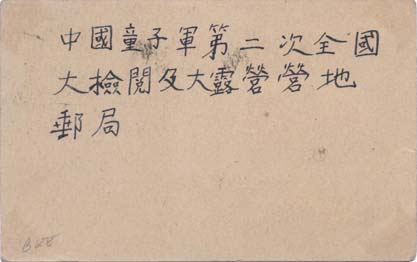 中國童子軍第二次全國
大檢閱及大露營營地
郵局